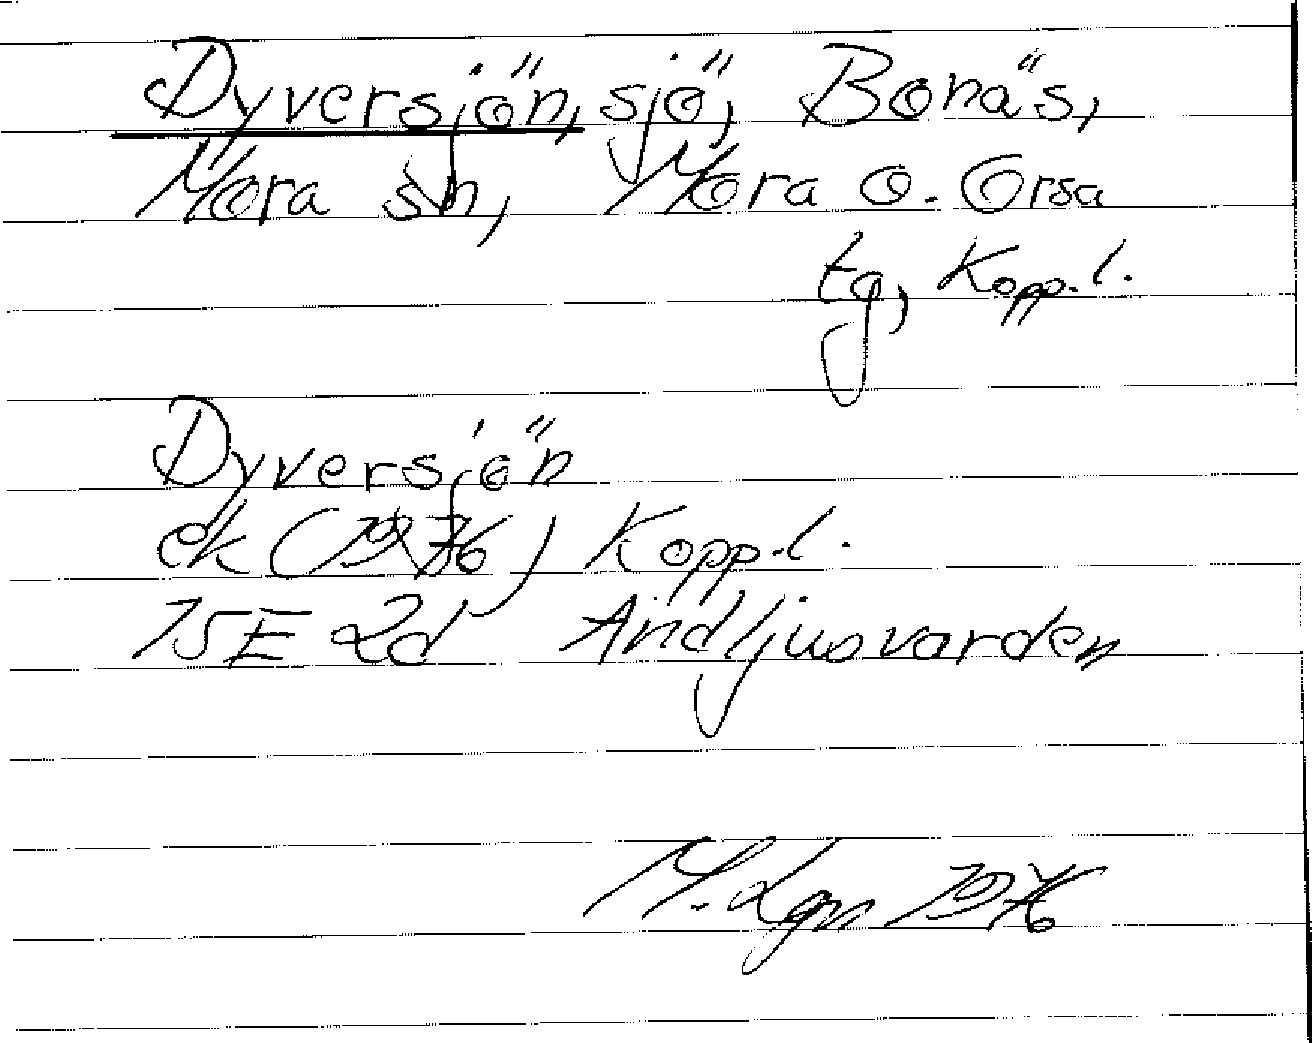 Dyversjön, sjö, Bonäs,
Mora sn, Mora o. Orsa
tg, Kopp.l.
Dyversjön
ek (1976) Kopp.l.
15E 2d Andljusvarden
M. Lgn 1976